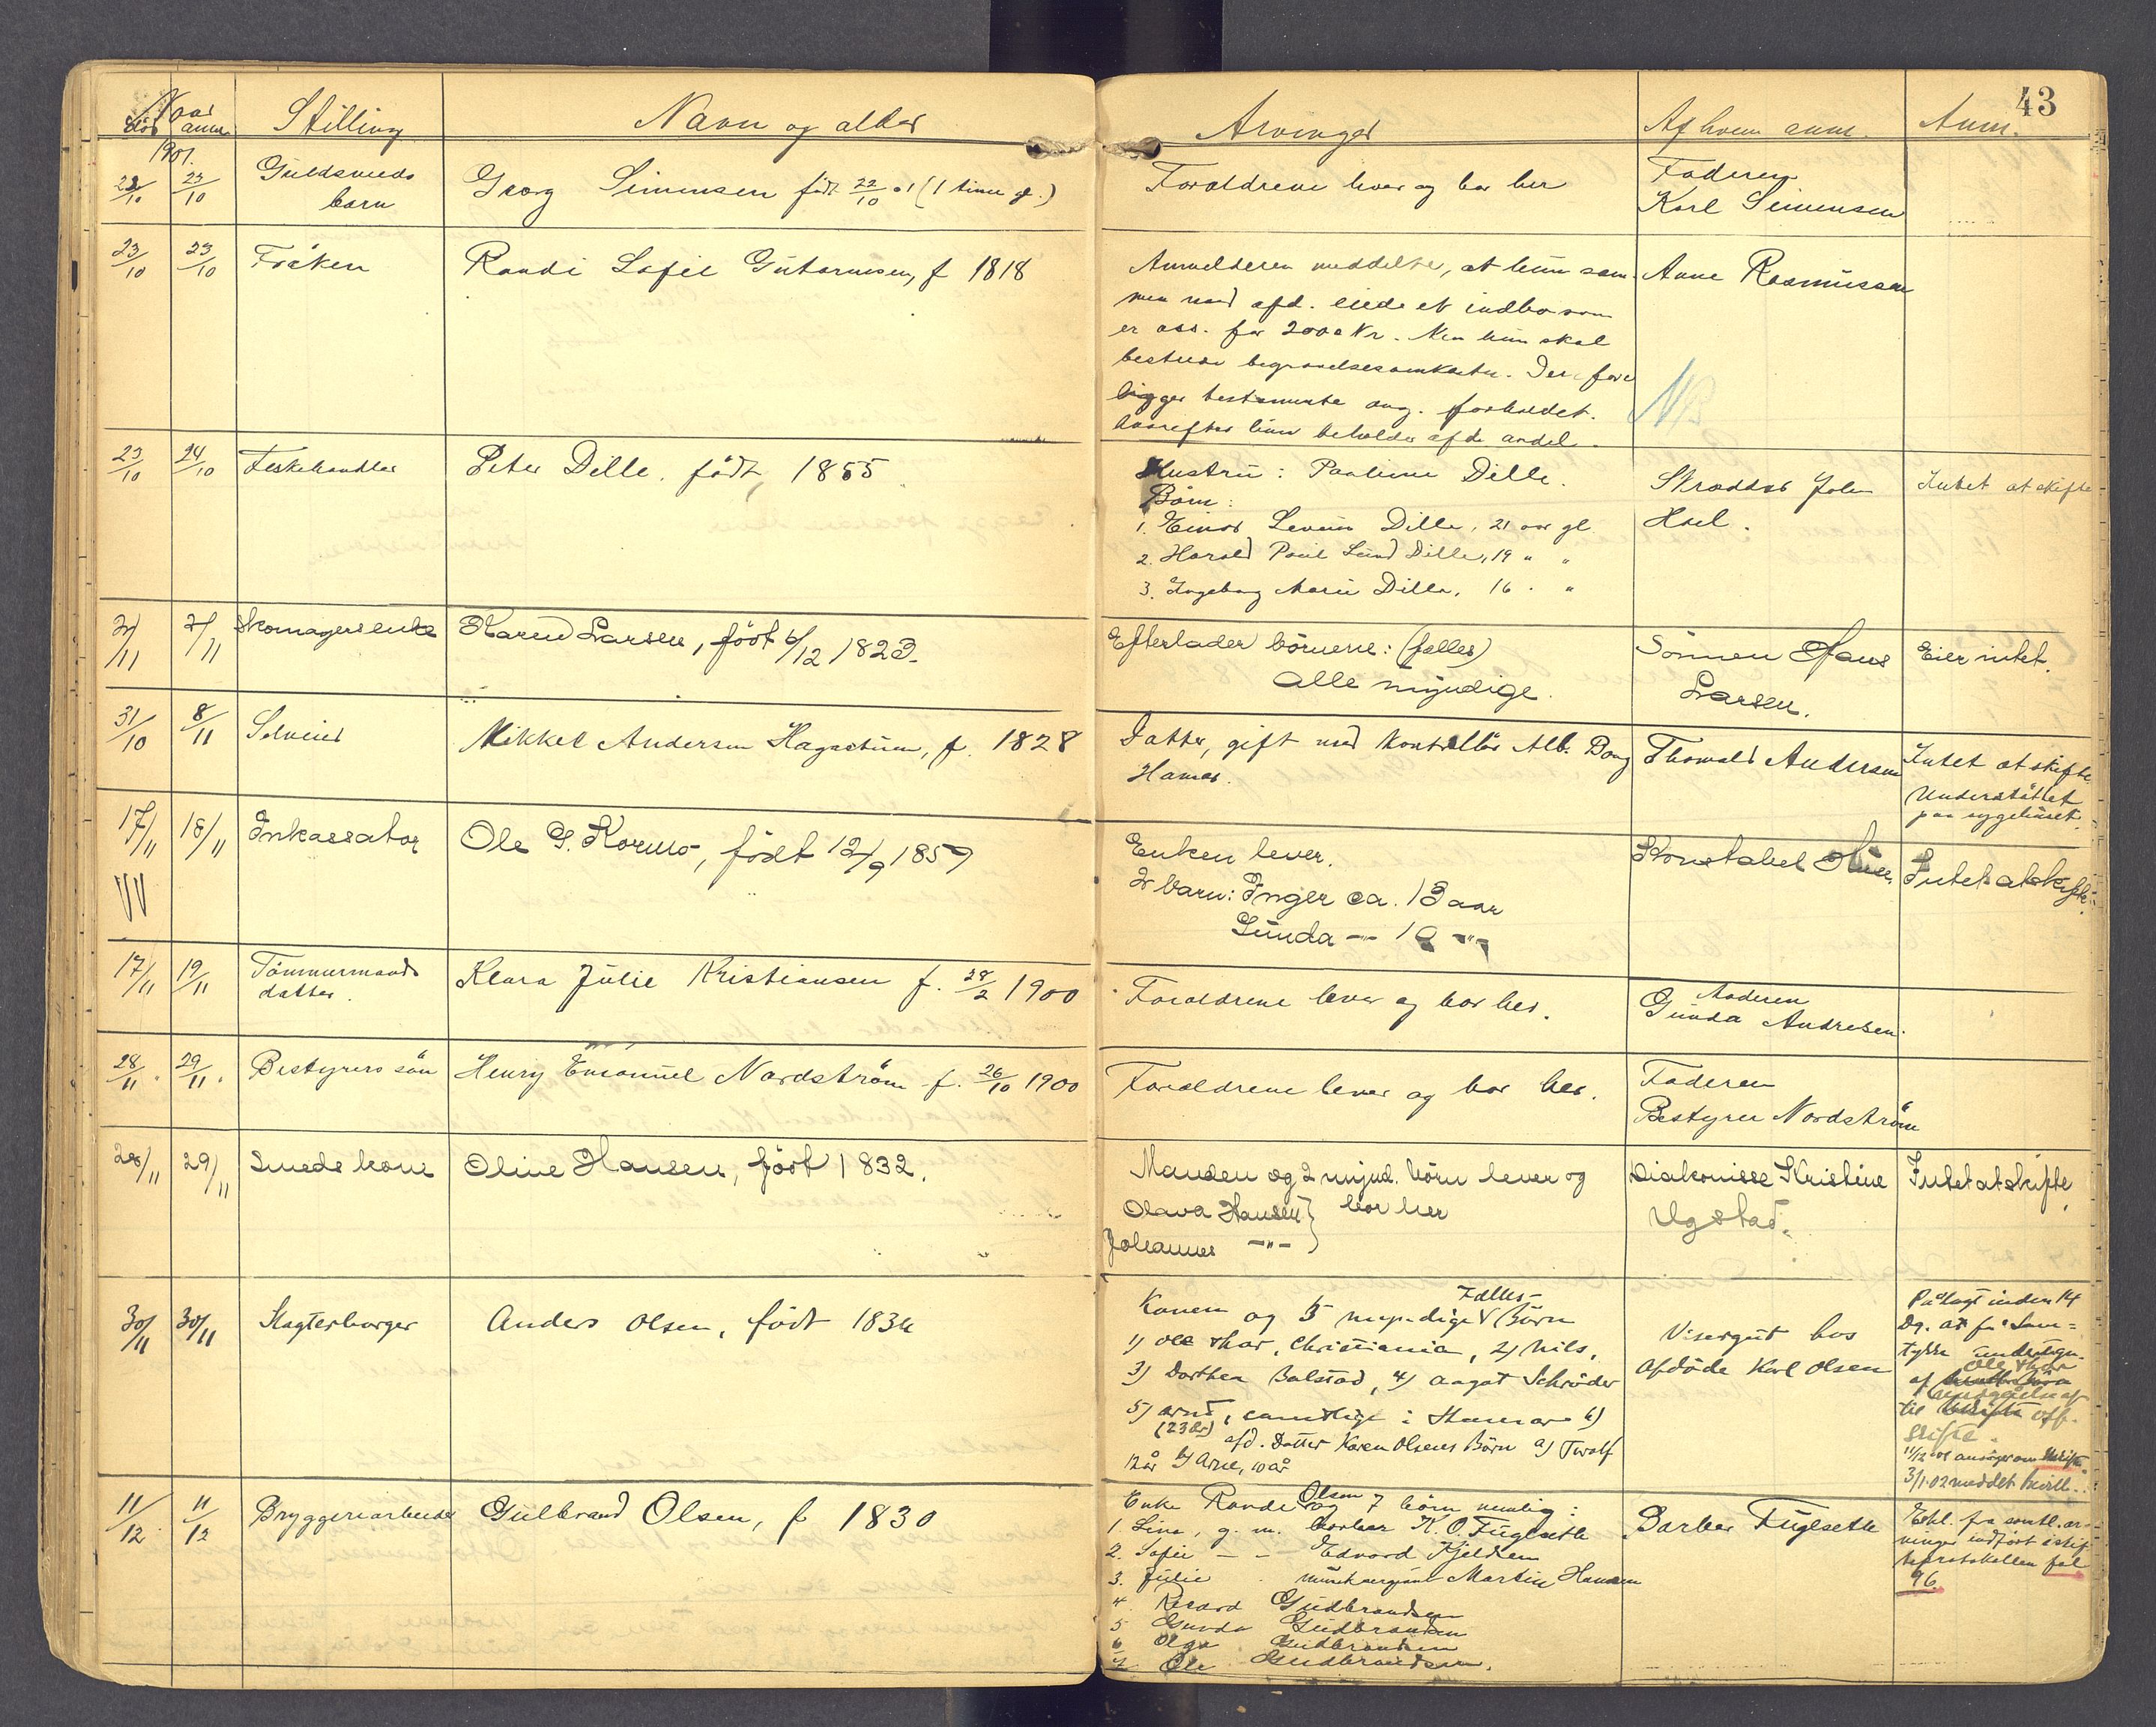 43
Naar
död anm. Stilling Navn og alder Arvinger Af hvem anm. Anm.
1901.
22/10 23/10 Guldsmeds
barn
Georg Simensen født 22/10 01 (1 time gl.)
Forældrene lever og bor her
Faderen
Karl Simensen
23/10 23/10 Frøken Randi Sofie Gutormsen, f 1818
Anmelderen meddelte, at hun sam-
men med afd. eiede et indbo som
er ass. for 2000 Kr. Men hun skal
bestride begravelsesomkostn. Der fore
ligger testamente ang. forholdet.
hvorefter hun beholder afd. andel.
Anne Rasmussen
NB
23/10 24/10 Fiskehandler Peter Dille. født, 1855
Hustru: Pauline Dille.
Børn:
1. Einar Severin Dille, 21 aar gl
2. Harald Paul Lund Dille, 19 " "
3. Ingeborg Marie Dille, 16 " "
Skrædder John
Hoel.
Intet at skifte
2/11 2/11 Skomagerenke Karen Larsen, født 6/12 1823.
Efterlader börnene: (fælles)
alle myndige.
Sønnen Hans
Larsen.
Eier intet.
31/10 8/11 Selveier Mikkel Andersen Hagastuen, f. 1828
Datter, gift med Kontrollør Alb. Bang
Hamar.
Thorvald Andersen
Intet at skifte.
Understöttet
paa sygehuset.
17/11 18/11 Inkassator Ole G. Kormo, født 12/9 1857
Enken lever.
2 barn: Inger ca. 13 aar
Gunda -"- 10 -"-
Konstabel
Intet at skifte.
17/11 19/11 Tømmermands
datter.
Klara Julie Kristiansen f. 28/2 1900
Forældrene lever og bor her.
Moderen
Gunda Andresen.
28/11 29/11 Bestyrers sön Henry Emanuel Nordström f. 26/10 1900
Forældrene lever og bor her.
Faderen
Bestyrer Nordström
28/11 29/11 Smeds kone Oline Hansen, født 1832.
Manden og 2 mynd. börn lever og
Olava Hansen } bor her
Johannes -"-
Diakonisse Kristine
Ugstad.
Intet at skifte.
30/11 30/11 Slagterborger Anders Olsen, födt 1834
Fælles-
Konen og 5 myndige Börn
1) Ole Thor, Christiania, 2) Nils,
3) Dorthea Balstad, 4) Aagot Schröder
5) Arnt, samtlige i Hamar 6)
(23 år) afd. Datter Karen Olsens Börn a) Thorolf
12 år b) Arne, 10 år
Visergut hos
afdöde Karl Olsen
Pålagt inden 14
Dg. at få Sam=
tykke
af Ole Thor
til off.
skifte.
11/12 01 ansöger om
3/1 02 meddelt bevill.
11/12 11/12 Bryggeriarbeider Gulbrand Olsen, f 1830
Enke Randi Olsen og 7 börn nemlig:
1. Lina, g. m. barber K. O. Fuglseth
2. Sofie - - Edvard Kjeldsen
3. Julie - musiksergeant Martin Hansen
4. Rikard Gudbrandsen
5 Gunda Gudbrandsen
6 Olga Gudbrandsen
7 Ole Gudbrandsen.
Barber Fuglseth
Erkl. fra samtl. ar-
vinger indført i skif-
teprotokollen fol
96.